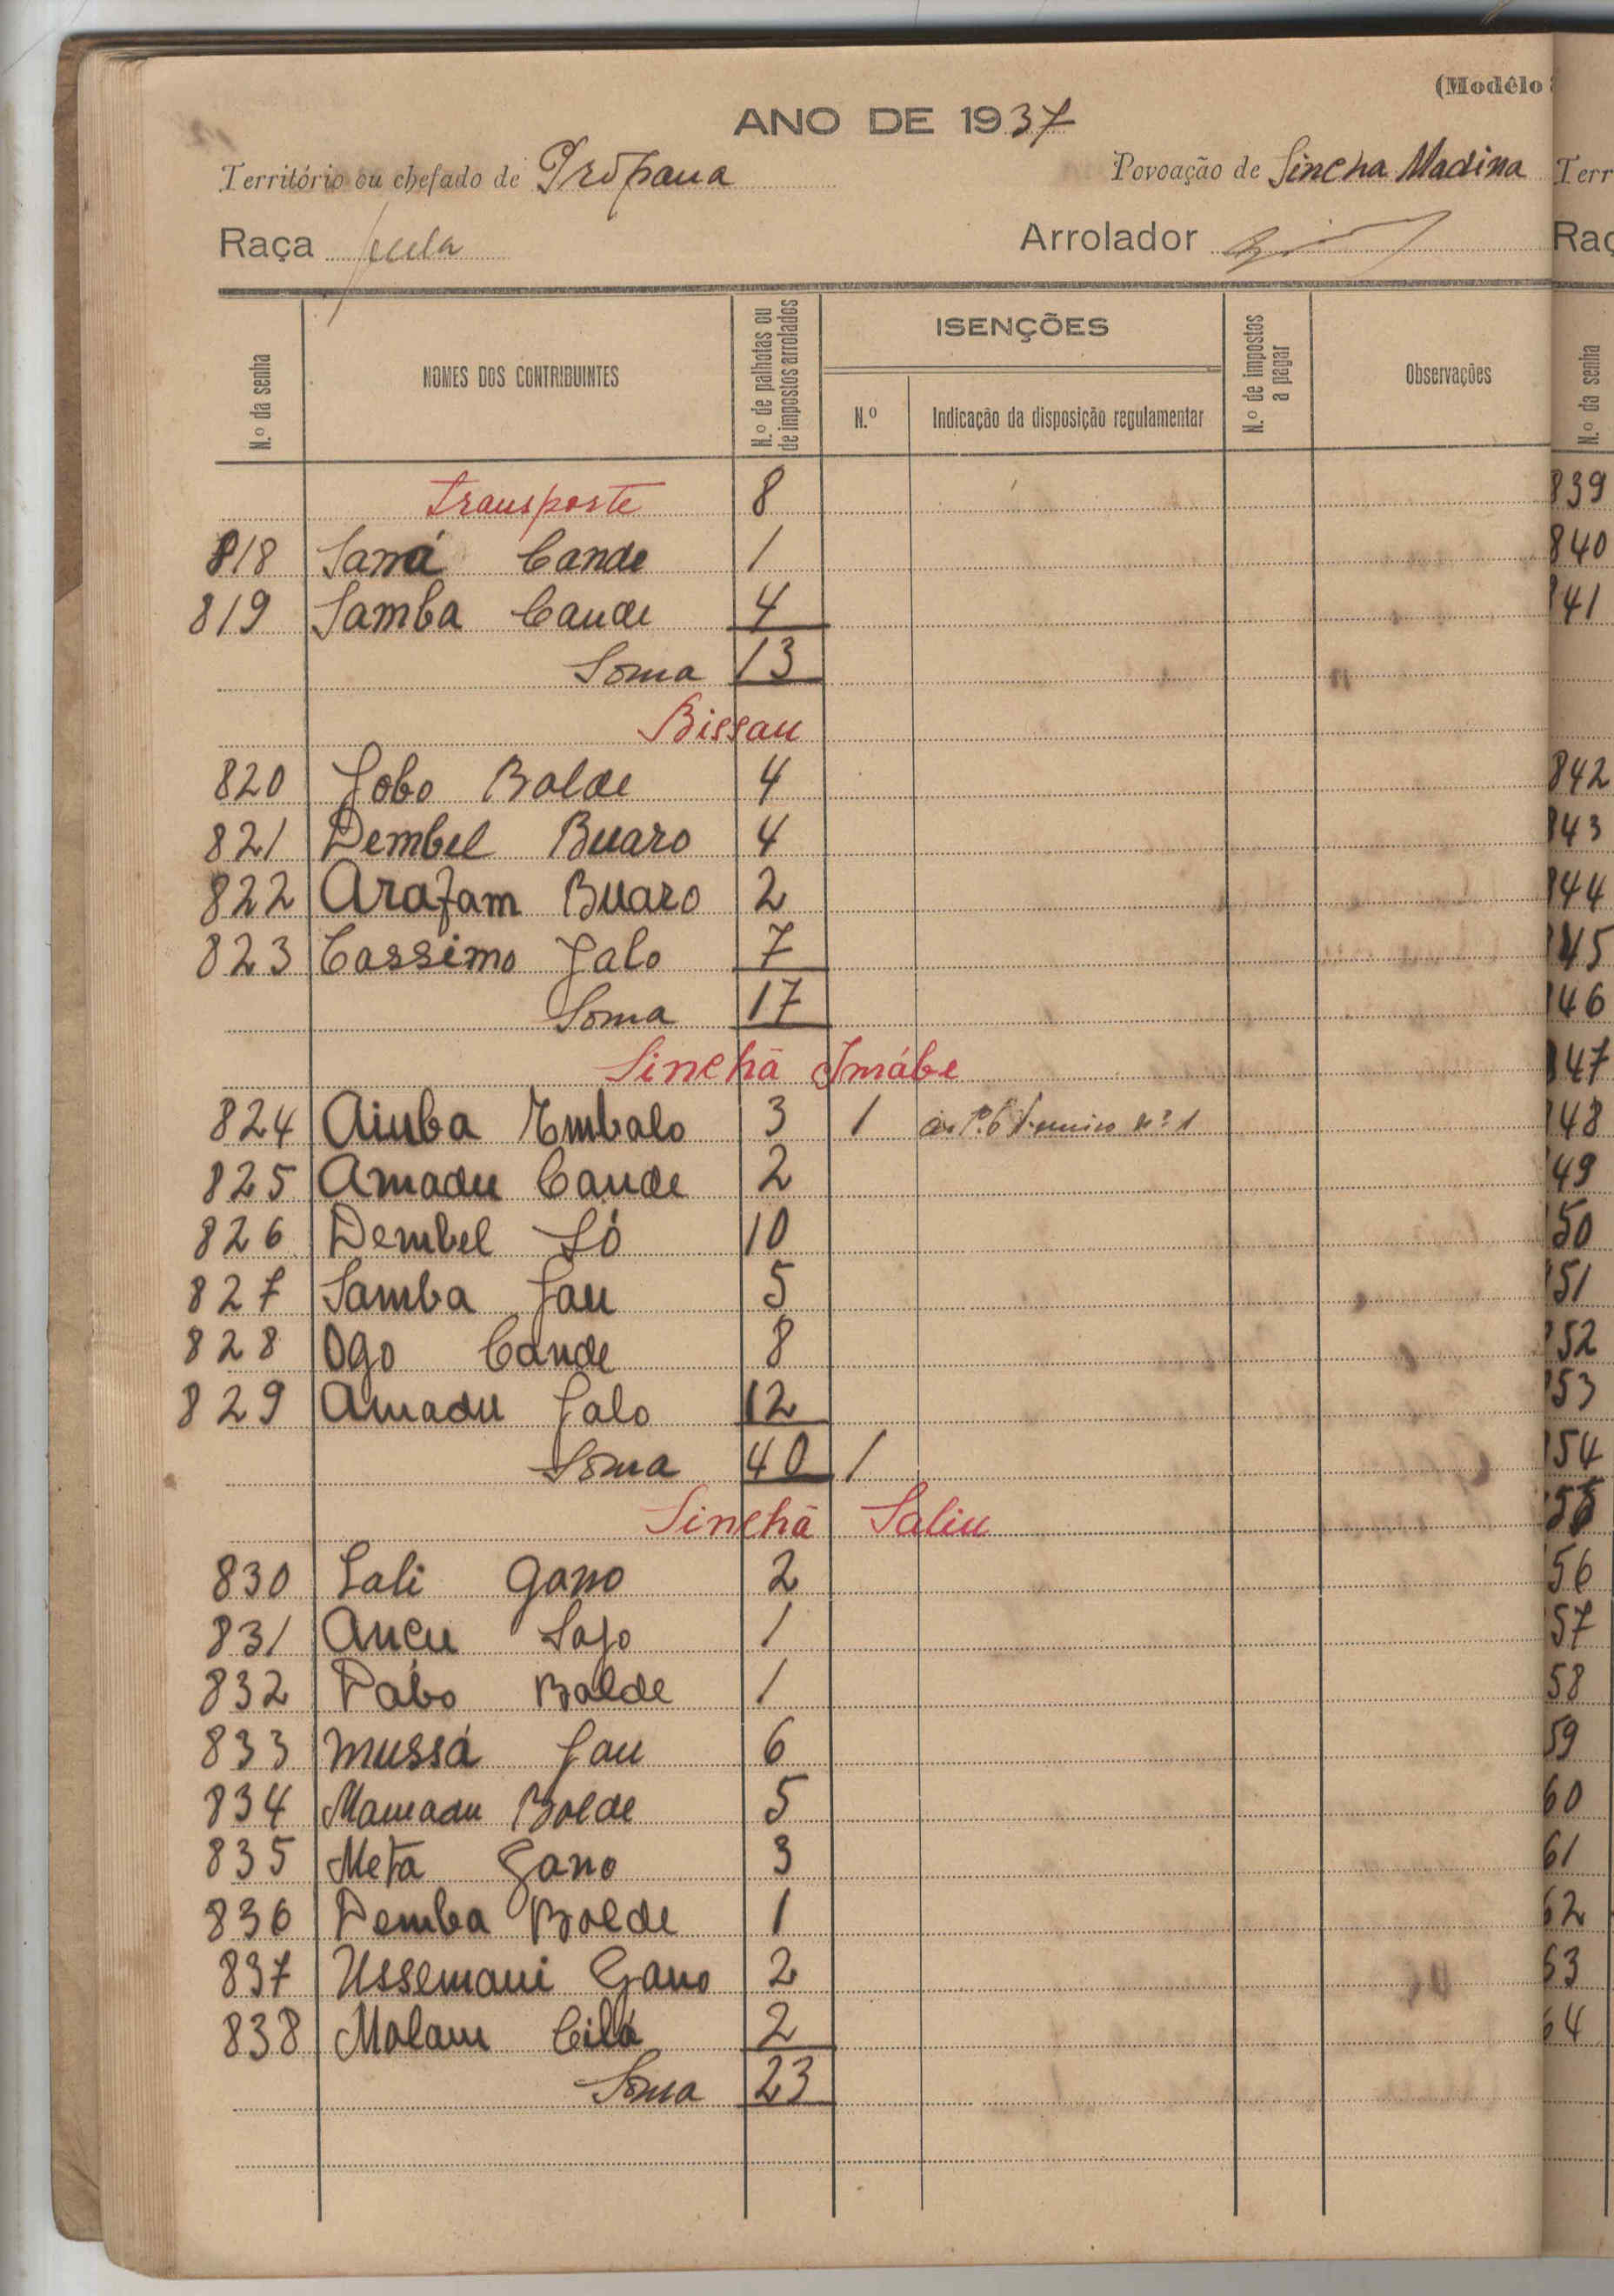 (Modêlo
ANO DE 1937
Território ou chefado de Própana Povoação de Sincha Madina
Raça fula Arrolador
N.º da senha NOMES DOS CONTRIBUINTES N.º de palhotas ou de impostos arrolados ISENÇÕES N.º de impostos a pagar Observações
N.º Indicação da disposição regulamentar
transporte 8
818 Saná Cande 1
819 Samba Cande 4
Soma 13
Bissau
820 Jobo Balde 4
821 Dembel Buaro 4
822 Arafam Buaro 2
823 Cassimo Jalo 7
Soma 17
Sinchã Jmábe
824 Aiuba Embalo 3 1
825 Amadu Cande 2
826 Dembel Só 10
827 Samba Jau 5
828 Ogo Cande 8
829 Amadu Jalo 12
Soma 40 1
Sinchã Saliu
830 Sali Gano 2
831 Ançu Sajo 1
832 Dabo Balde 1
833 Mussá Jau 6
834 Mamadu Balde 5
835 Meta Gano 3
836 Demba Balde 1
837 Ussemani Gano 2
838 Malam Cilá 2
Soma 23
Terr
Raç
N.º da senha
839
840
841
842
843
844
845
846
847
848
49
50
51
52
53
54
55
56
57
58
59
60
61
62
63
64